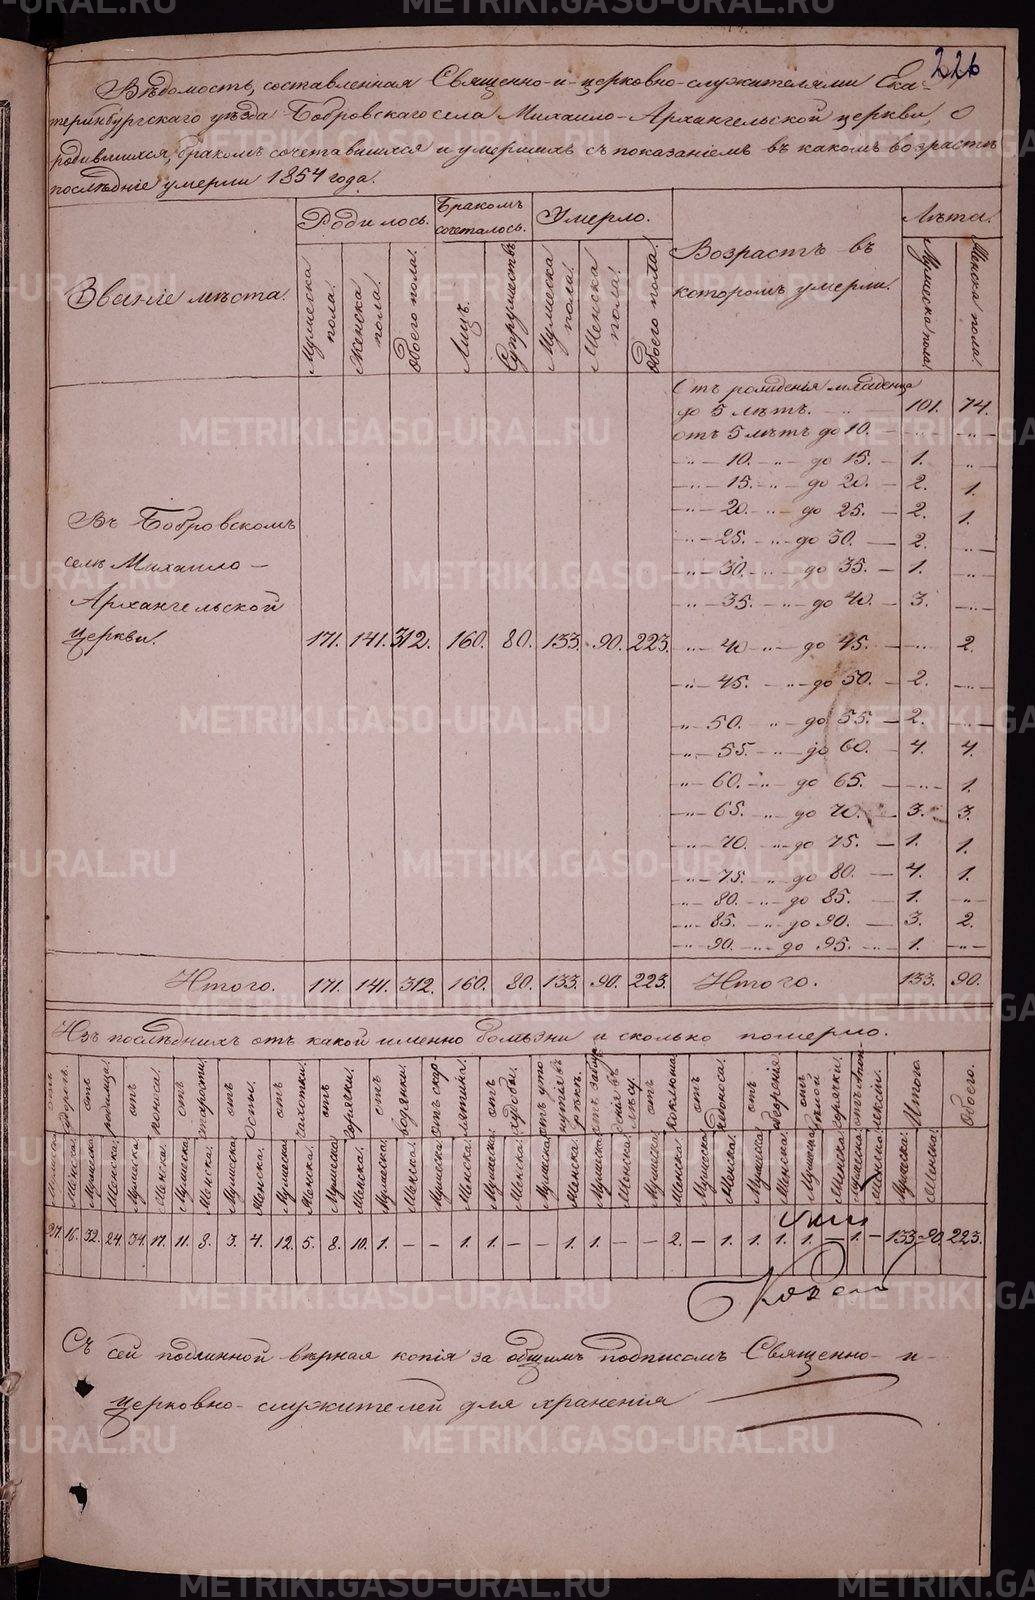 226
Вѣдомость, составленная Священно-и-церковно-служителями Ека-
теринбургскаго уѣзда Бобровскаго села Михаило-Архангельской церкви, о
родившихся, бракомъ сочетавшихся и умершихъ съ показаніемъ въ какомъ возрастѣ
послѣдніе умерли 1854 года.
Званіе мѣста. Родилось. Бракомъ сочеталось. Умерло. Возрастъ въ которомъ умерли. Лѣта.
Мужеска пола. Женска пола. Обоего пола. Лицъ. Супружествъ. Мужеска пола. Женска пола. Обоего пола. Мужеска пола. Женска пола.
Въ Бобровскомъ
селѣ Михаило-
Архангельской
церкви. 171. 141. 312. 160. 80. 133. 90. 223.
Отъ рожденья младенца
до 5 лѣтъ. 101. 74.
отъ 5 лѣтъ до 10. — „ — „ —
„ — 10. — „ — до 15. — 1. „ —
„ — 15. — „ — до 20. — 2. 1.
„ — 20. — „ — до 25. — 2. 1.
„ — 25. — „ — до 30. — 2. „ —
„ — 30. — „ — до 35. — 1. „ —
„ — 35. — „ — до 40. — 3. „ —
„ — 40 — „ — до 45. — „ — 2.
„ — 45. — „ — до 50. — 2. „ —
„ — 50. — „ — до 55. — 2. „ —
„ — 55. — „ — до 60. — 4. 4.
„ — 60. — „ — до 65. — „ — 1.
„ — 65. — „ — до 70. — 3. 3.
„ — 70. — „ — до 75. — 1. 1.
„ — 75. — „ — до 80. — 4. 1.
„ — 80. — „ — до 85. — 1. „ —
„ — 85. — „ — до 90. — 3. 2.
„ — 90. — „ — до 95. — 1. „ —
Итого. 171. 141. 312. 160. 80. 133. 90. 223. Итого. 133. 90.
Изъ послѣднихъ отъ какой именно болѣзни и сколько померло.
отъ родимца. отъ поноса. отъ старости. отъ оспы. отъ чахотки. отъ горячки. отъ водянки. отъ худобы. отъ коклюша Итого. Обоего.
Мужеска. Женска. Мужеска. Женска. Мужеска. Женска. Мужеска. Женска. Мужеска. Женска. Мужеска. Женска. Мужеска. Женска. Мужеска. Женска. Мужеска. Женска. Мужеска. Женска. Мужеска. Женска. Мужеска. Женска. Мужеска. Женска. Мужеска. Женска. Мужеска. Женска. Мужеска. Женска. Мужеска. Женска. Мужеска. Женска.
27. 16. 32. 24. 34. 17. 11. 8. 3. 4. 12. 5. 8. 10. 1. — — 1. 1. — — 1. 1. — — 2. — 1. 1. 1. 1. — 1. — 133. 90. 223.
Съ сей подлинной вѣрная копія за общимъ подписомъ Священно-и-
церковно-служителей для храненія
METRIKI.GASO-URAL.RU